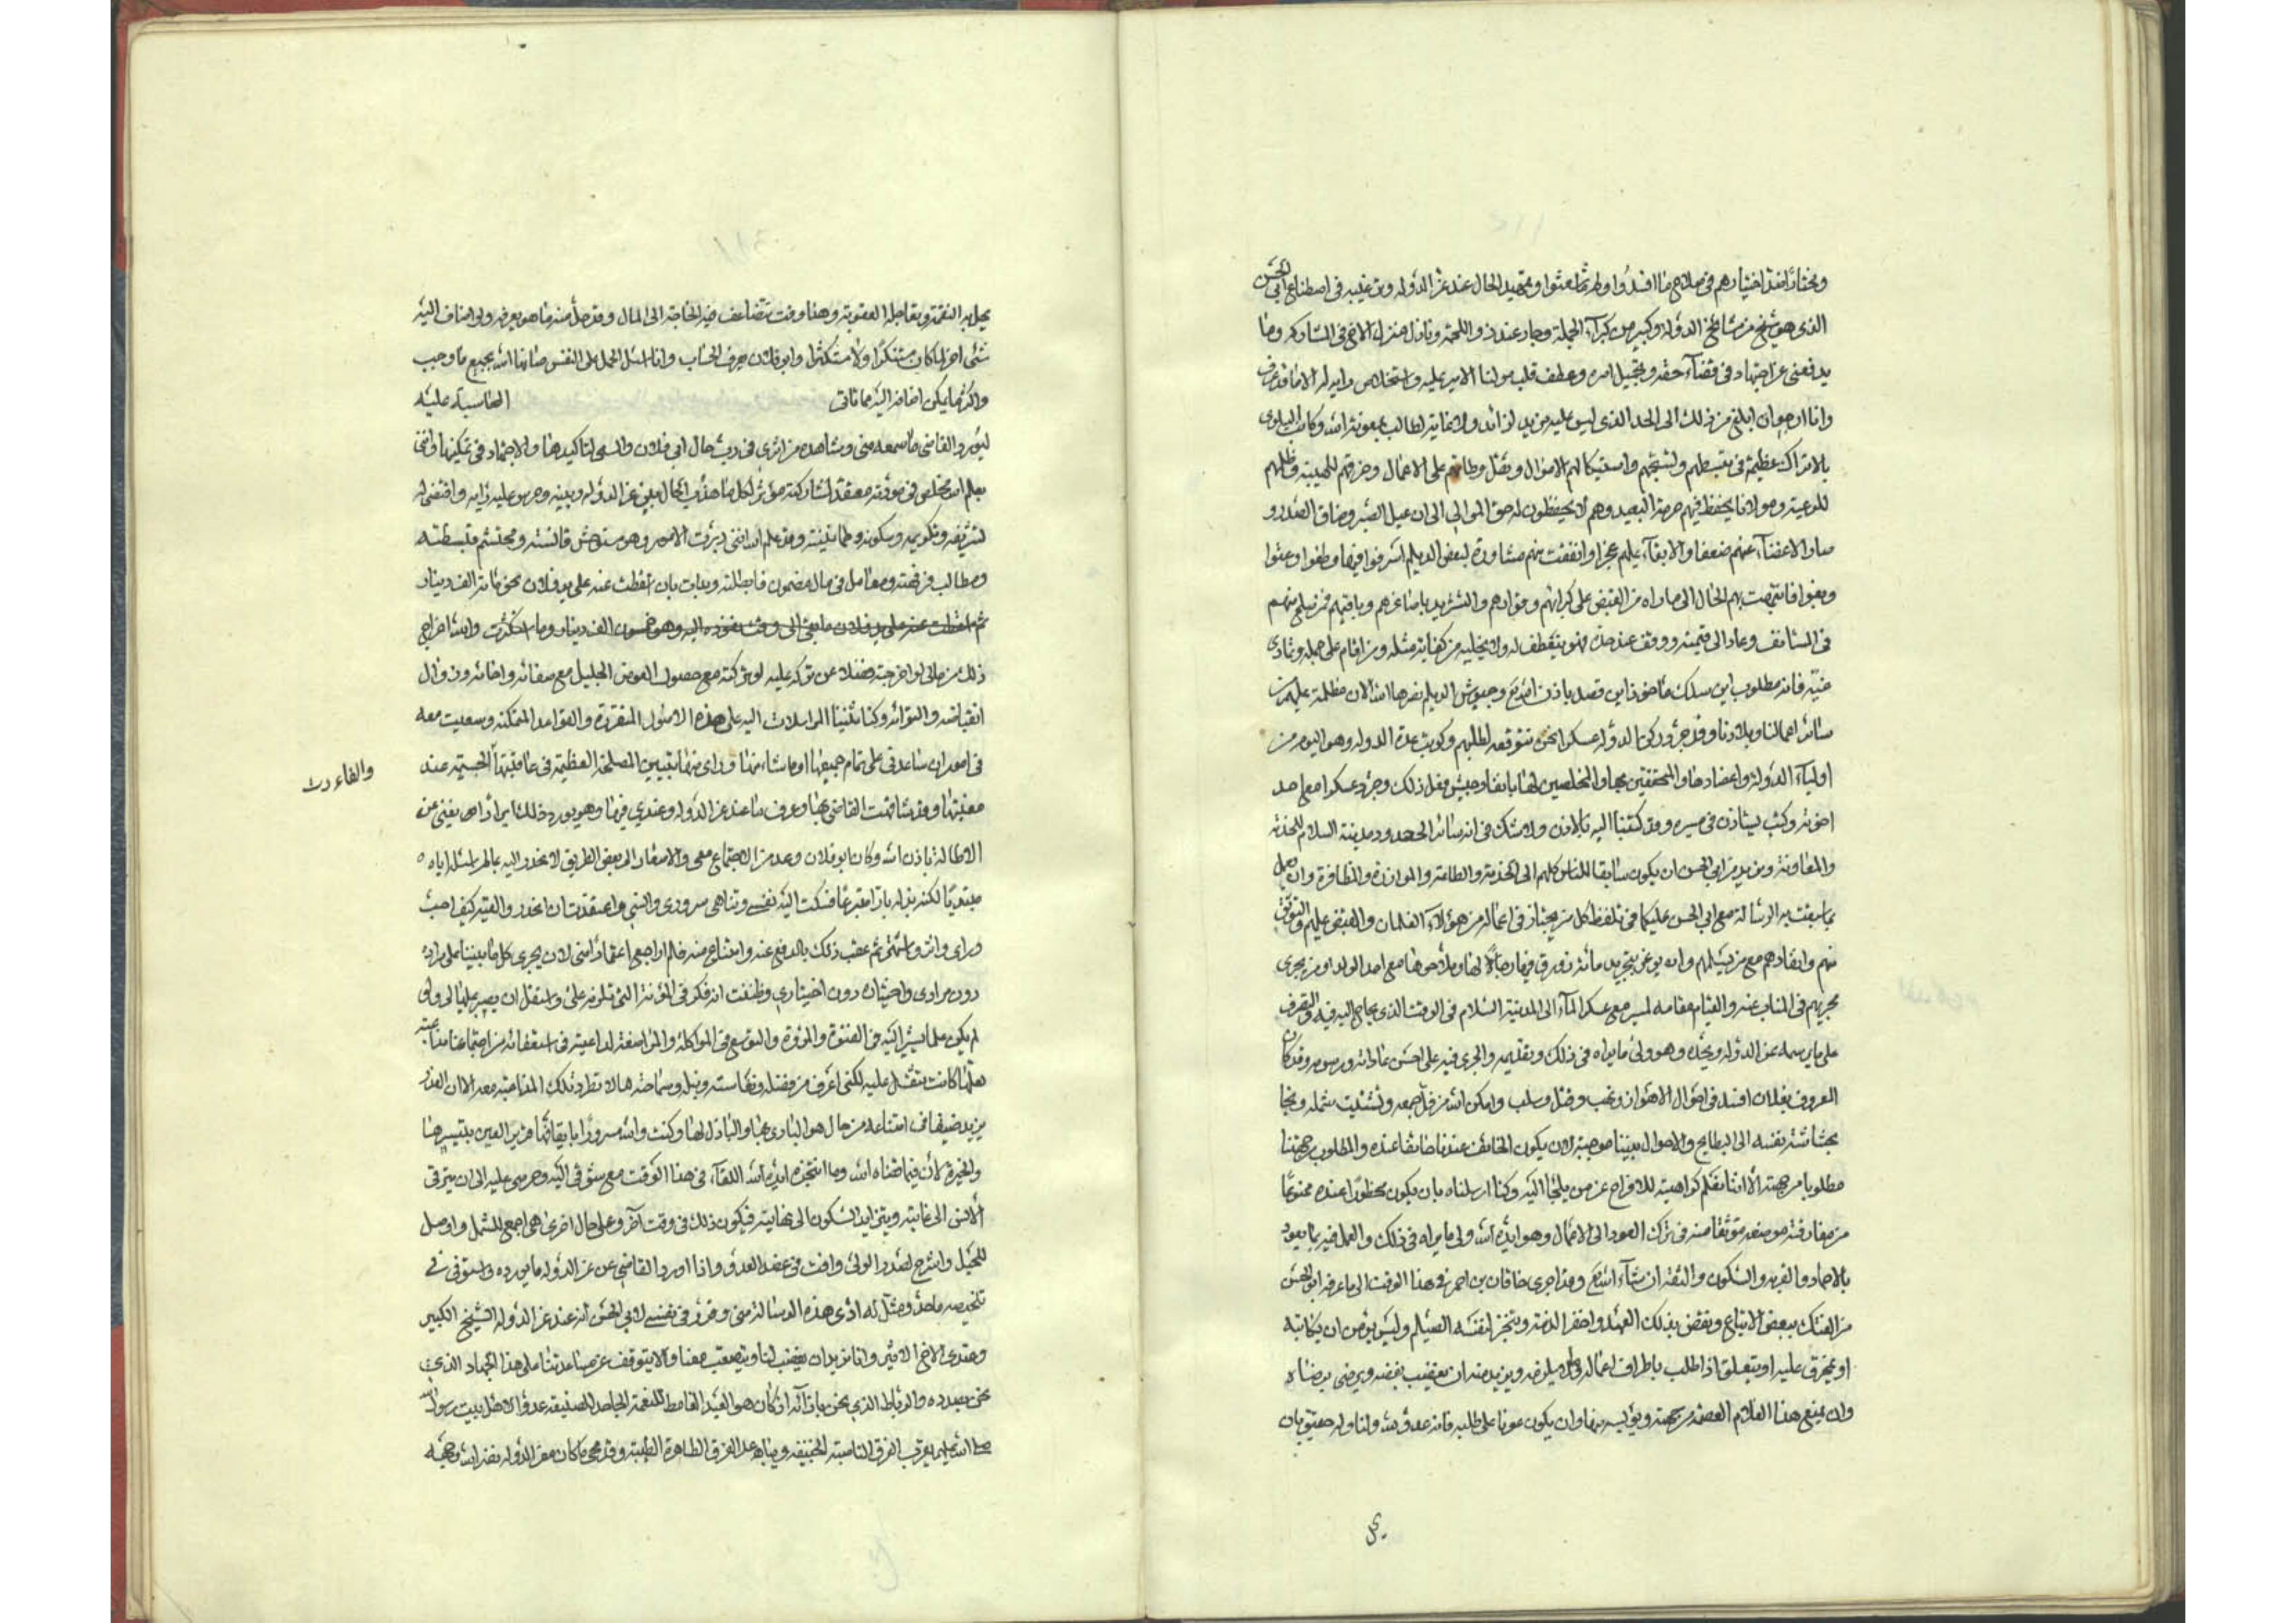 ومختارا فقد اختيارهم في صلاح ما افسدوا ولم شعثوا وتمهيد الحال عند عز الدوله وترغيبه في اصطناع ابي الحسن
الذي هو شيخ من مشايخ الدوله وكبير من كبرآء الجملة وجار عند ذو اللحمة ونازل منزلة الاخ في المشاركه وما
يدفعني عن اجتهاد في قضآء حقه وتجميل امره وعطف قلب مولنا الامير عليه واستخلاص رايه له الا ما قد عرف
وانا ارجو ان ابلغ من ذلك الى الحد الذي ليس عليه مزيد لزائد ولا نهاية لطالب بمعونة الله وكانت البلوى
بالاتراك عظيمة في تبسطهم وتسحبهم واستيكالهم الاموال وثقل وطاتهم على الاعمال وخرقهم للهيبه وظلمهم
للرعية ومولانا يحفظ فيهم حرمة البعيد وهم لا يحفظون له حق الموالي الى ان عيل الصبر وضاق الصدر و
صار الاغضآء عنهم ضعفا والابقآء عليهم عجزا واتفقت منهم مشاورة لبعض الديلم اسرفوا فيها وطغوا وعتوا
وبغوا فانتهت بهم الحال الى ما راه من القبض على كبرائهم وقوادهم والتشريد باصاغرهم وباقيهم فمن سلم منهم
في المستانف وعاد الى قيمته ووقف عند حده فهو يتعطف له ولا يخليه من كفاية مثله ومن اقام على جهله وتمادى
غيه فانه مطلوب اين سلك ماخوذ اين قصد باذن الله تع وجيوش الديلم نصرها الله الان مظلة عليهم من
سائر اعمالنا وبلادنا وقد جرد ركن الدوله عسكرا نحن نتوقعه لطلبهم وكوتب عدة الدوله وهو اليوم من
اوليآء الدوله واعضادها والمحققين بها والمخلصين لها بانفاذ جيش ففعل ذلك وجرد عسكرا مع احد
اخوته وكتب يستاذن في مسيره وقد كتبنا اليه بالاذن ولا شك في انه سائر الى حدود مدينة السلام للخدمة
والمعاونة ونريد من ابي الحسن ان يكون سابقا للناس كلهم الى الخدمة والطاعة والموازرة والمظافرة وان يعمل
بما سبقت به الرسالة مع ابي الحسن عليكا في تلفظ كل من يجتاز في اعماله من هؤلآء الغلمان والقبض عليهم والتوثق
منهم وانفاذهم مع من يتسلمهم وان يوعز بتجريد مائة زورق فيها رجالة لها وملاحوها مع احد الولد او من يجري
مجريهم في المناب عنه والقيام مقامه ليسير مع عسكر المآء الى المدينة السلام في الوقت الذي يحتاج اليه فيه والتصرف
على ما يرسمه عز الدوله ويحده وهو ولي ما يراه في ذلك وتقديمه والجري فيه على احسن عاداته ورسومه وقد كان
المعروف بفلان افسد في احوال الاهواز ونهب وقتل وسلب وامكن الله من فل جمعه وتشتيت شمله ونجا
بحشاشة نفسه الى البطايح والاحوال بيننا موجبة لان يكون الخائف عندنا خائفا عنده والمطلوب من جهتنا
مطلوبا من جهته الا اننا نعلم كراهيته للافراج عن من يلجأ اليه وكنا ارسلناه بان يكون محظورا عنده ممنوعا
من مفارقته موضعه متوثقا منه في ترك العود الى الاعمال وهو ايده الله ولي ما يراه في ذلك والعمل فيه بما يعود
بالاحماد والقربه والسكون والثقة ان شآء الله تع وقد اجرى خاقان بن احمد في هذا الوقت الى ما عرفه ابو الحسن
من الفتك ببعض الاتباع ونقض بذلك العهد واخفر الذمة وينجز لنفسه الصيلم وليس يؤمن ان يكاتبه
او يمخرق عليه او يتعلق اذا طلب باطراف اعماله وما يلي ارضه ونريد منه ان يغضب بغضبه ويرضى برضاه
وان يمنع هذا الغلام العصمة من جهته ويؤيسه منها وان يكون عونا على طلبه فانه عدو لله ولنا وله حقيق بان
يحل
يحل به النقمة ويعاجله العقوبة وهذا وقت تتضاعف فيه الحاجة الى المال وقد حمل منه ما هو يعرفه ولو اضاف اليه
شئي اخر لما كان مستنكرا ولا مستكثرا وابو فلان يعرف الحساب وانا اسئل الحمل على النفس ضامنا الله بجميع ما وجب
واكثر ما يمكن اضافة اليه مما تاتي المحاسبة عليه
ليورد القاضي ما سمعه مني وشاهده من اثري في رب حال ابي فلان والسعي لتاكيدها والاجتهاد في تمكينها وانني
بعلم الله مخلص في مودته معتقد لمشاركته مؤثر لكل ما هذب الحال بين عز الدوله وبينه وحرس عليه رايه واقتضى له
تشريفه وتكريمه وسكونه وطمانينته وقد علم الله انني دبرت الامور وهو مستوحش فانسته ومحتشم فبسطته
ومطالب فرفهته ومعامل في مال مضمون فابطلته وبدات بان اسقطت عنه على يد فلان نحو مائة الف دينار
ثم اسقطت عنه على يد فلان ما بقي الى وقت نفوذه اليه وهو خمسون الف دينار وما استكثرت والله اخراج
ذلك من مالي لو اخرجته فضلا عن تركه عليه لو تركته مع حصول العوض الجليل مع صفائه واخائه وزوال
انقباضه والتوائه وكنا بنينا المراسلات اليه على هذه الاصول المتقررة والقواعد المتمكنه وسعيت معه
في امور ان ساعدني على تمام جميعها او ما شاء منها وراى منها تبيين المصلحة العظيمه في عاقبتها الحسنه عند
والفاءدت
مغبتها وقد شافهت القاضي بها وعرف ما عند عز الدوله وعندي فيها وهو يورد ذلك ايرادا يغني عن
الاطالة باذن الله وكان ابو فلان وعد من الاجتماع معي والاسفار الى بعض الطريق لانحدر اليه بما لم اسئله اياه
مبتديا لكنه بذله بارا متبرعا فسكنت اليه نفسي وتناهى سروري واعتقدت ان انحدر والقيه كيف احب
وراى واثر واشتهى ثم عقب ذلك بالدفع عنه وامتناع منه فلم اراجع اعتمادا مني لان يجري كل ما بيننا على مراده
دون مرادي واختياره دون اختياري وظننت انه فكر في المؤنة التي تلزمه علي واستقل ان يصير عليها لي ولي
لم يكن علما يشير اليه في الفتوة والمروة والتوسع في المواكلة والمراسفة لداعيته في استعفائه من اجتماعنا
فلما كانت تثقل عليه لكني اعرف من فضله ونفاسته ونبله وسماحته ما لا تطرد تلك المداعبة معه الا ان العذر
يزيد ضيقا في امتناعه من حال هو البادي بها والباذل لها وكنت والله مسرورا بايقاعها قرير العين بتيسيرها
والخيرة لان فيما قضاه الله وما استنجزه ايده الله اللقآء في هذا الوقت مع شوقي اليه وحرصي عليه الى ان يترقى
الانس الى غايته ويتزايد السكون الى نهايته فيكون ذلك في وقت آخر وعلى حال اخرى هي اجمع للشمل واوصل
للحبل واشرح لصدر الولي وافت في عضد العدو واذا اورد القاضي عن عز الدوله ما يورده واستوفى في
تلخيصه ما حد ومثل له ادى هذه الرسالة مني وقرر في نفسي لابي الحسن انه عند عز الدوله الشيخ الكبير
وعندي الاخ الاثير وانا نريدان يغضب لنا ويتعصب معنا والا يتوقف عن مساعدتنا على هذا الجهاد الذي
نحن بصدده والرباط الذي نحن بازآئه اذ كان هو العبد الغامط للنعمة الجاحد للصنيعه عدوا لاهل بيت رسول الله
صلى الله عليه يقرب الفرق الناصبة الخبيثه ويباعد الفرق الطاهرة الطيبة وقد محى ما كان معز الدوله نضر الله وجهه